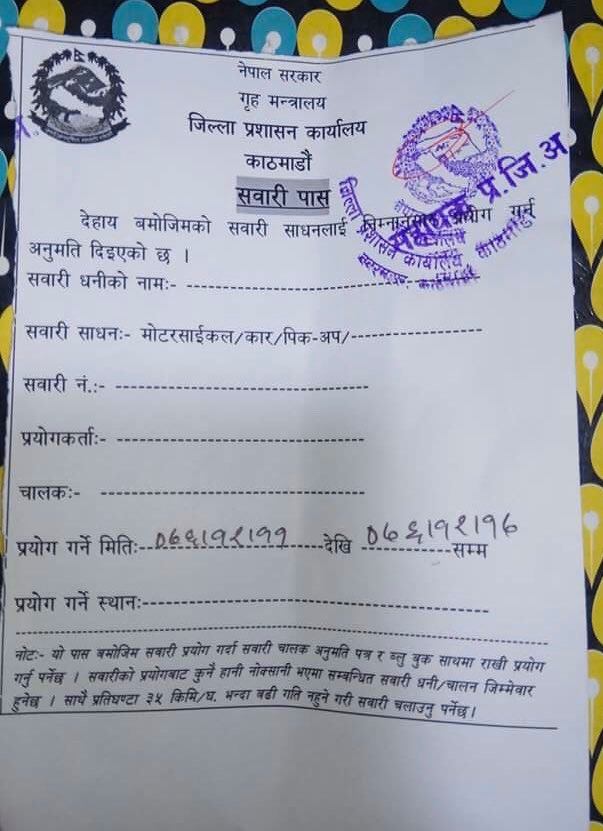 नेपाल सरकार
गृह मन्त्रालय
जिल्ला प्रशासन कार्यालय
काठमाडौं
सवारी पास
देहाय बमोजिमको सवारी साधनलाई निम्नानुसार प्रयोग गर्न
अनुमति दिइएको छ ।
सवारी धनीको नामः-
सवारी साधनः- मोटरसाईकल/कार/पिक-अप/
सवारी नं.:-
प्रयोगकर्ताः-
चालकः-
प्रयोग गर्ने मितिः ०७६।१२।११ देखि ०७६।१२।१६ सम्म
प्रयोग गर्ने स्थानः-
नोटः- यो पास बमोजिम सवारी प्रयोग गर्दा सवारी चालक अनुमति पत्र र ब्लु बुक साथमा राखी प्रयोग
गर्नु पर्नेछ । सवारीको प्रयोगबाट कुनै हानी नोक्सानी भएमा सम्बन्धित सवारी धनी/चालन जिम्मेवार
हुनेछ । साथै प्रतिघण्टा ३५ किमि/घ. भन्दा बढी गति नहुने गरी सवारी चलाउनु पर्नेछ।
सहायक प्र.जि.अ
जिल्ला प्रशासन कार्यालय काठमाडौं